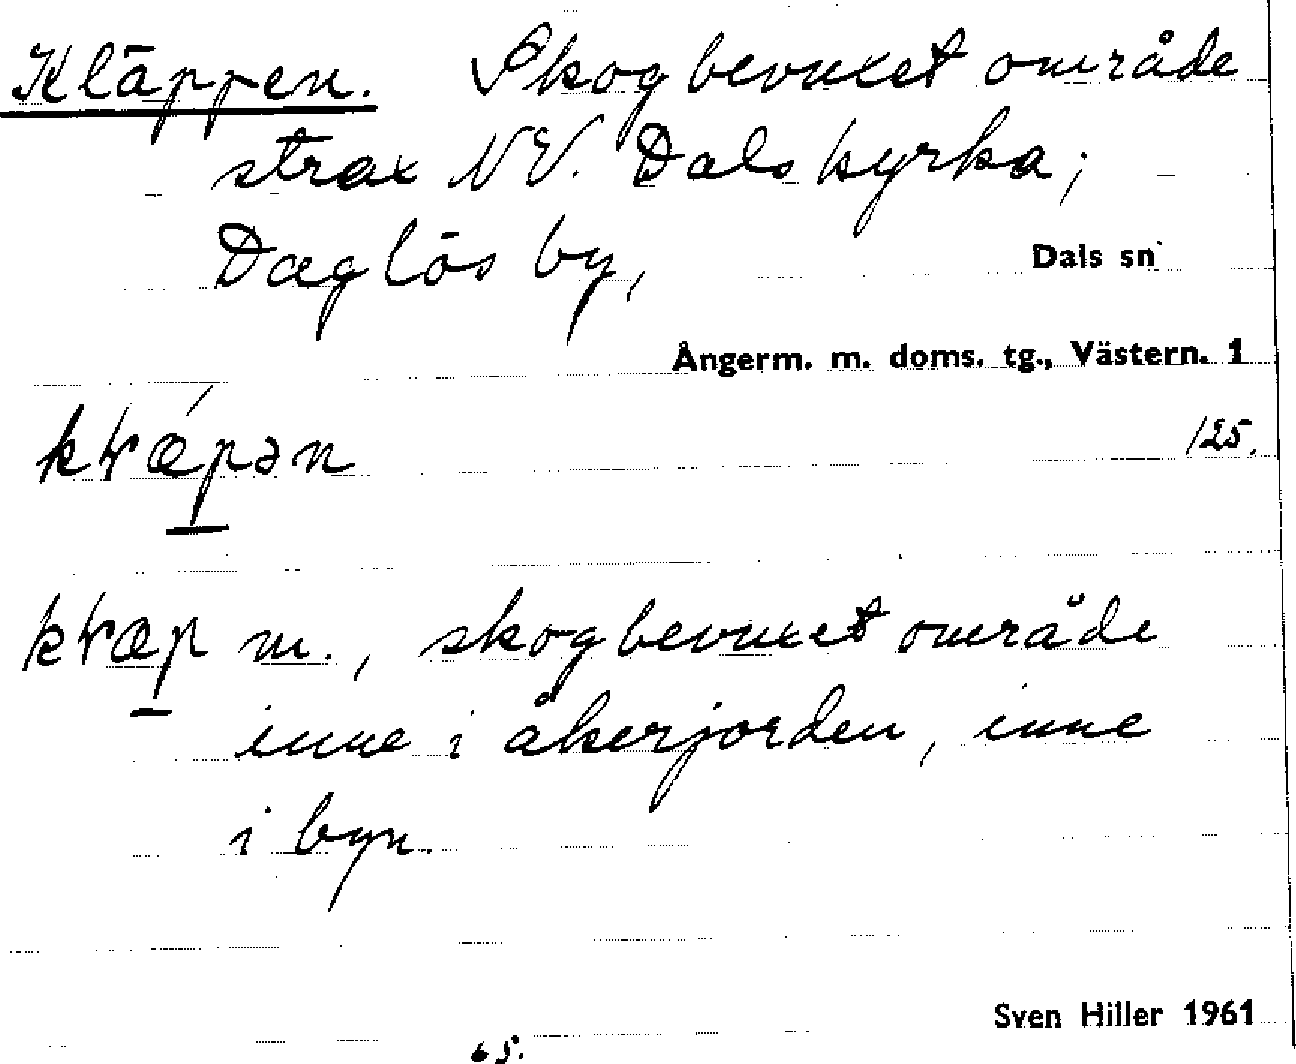 Kläppen. Skogbevuxet område
strax NV. Dals kyrka;
Daglös by,
Dals sn
Ångerm. m. doms. tg., Västern. 1
125.
skogbevuxet område
inne i åkerjorden, inne
i byn.
Sven Hiller 1961
65.